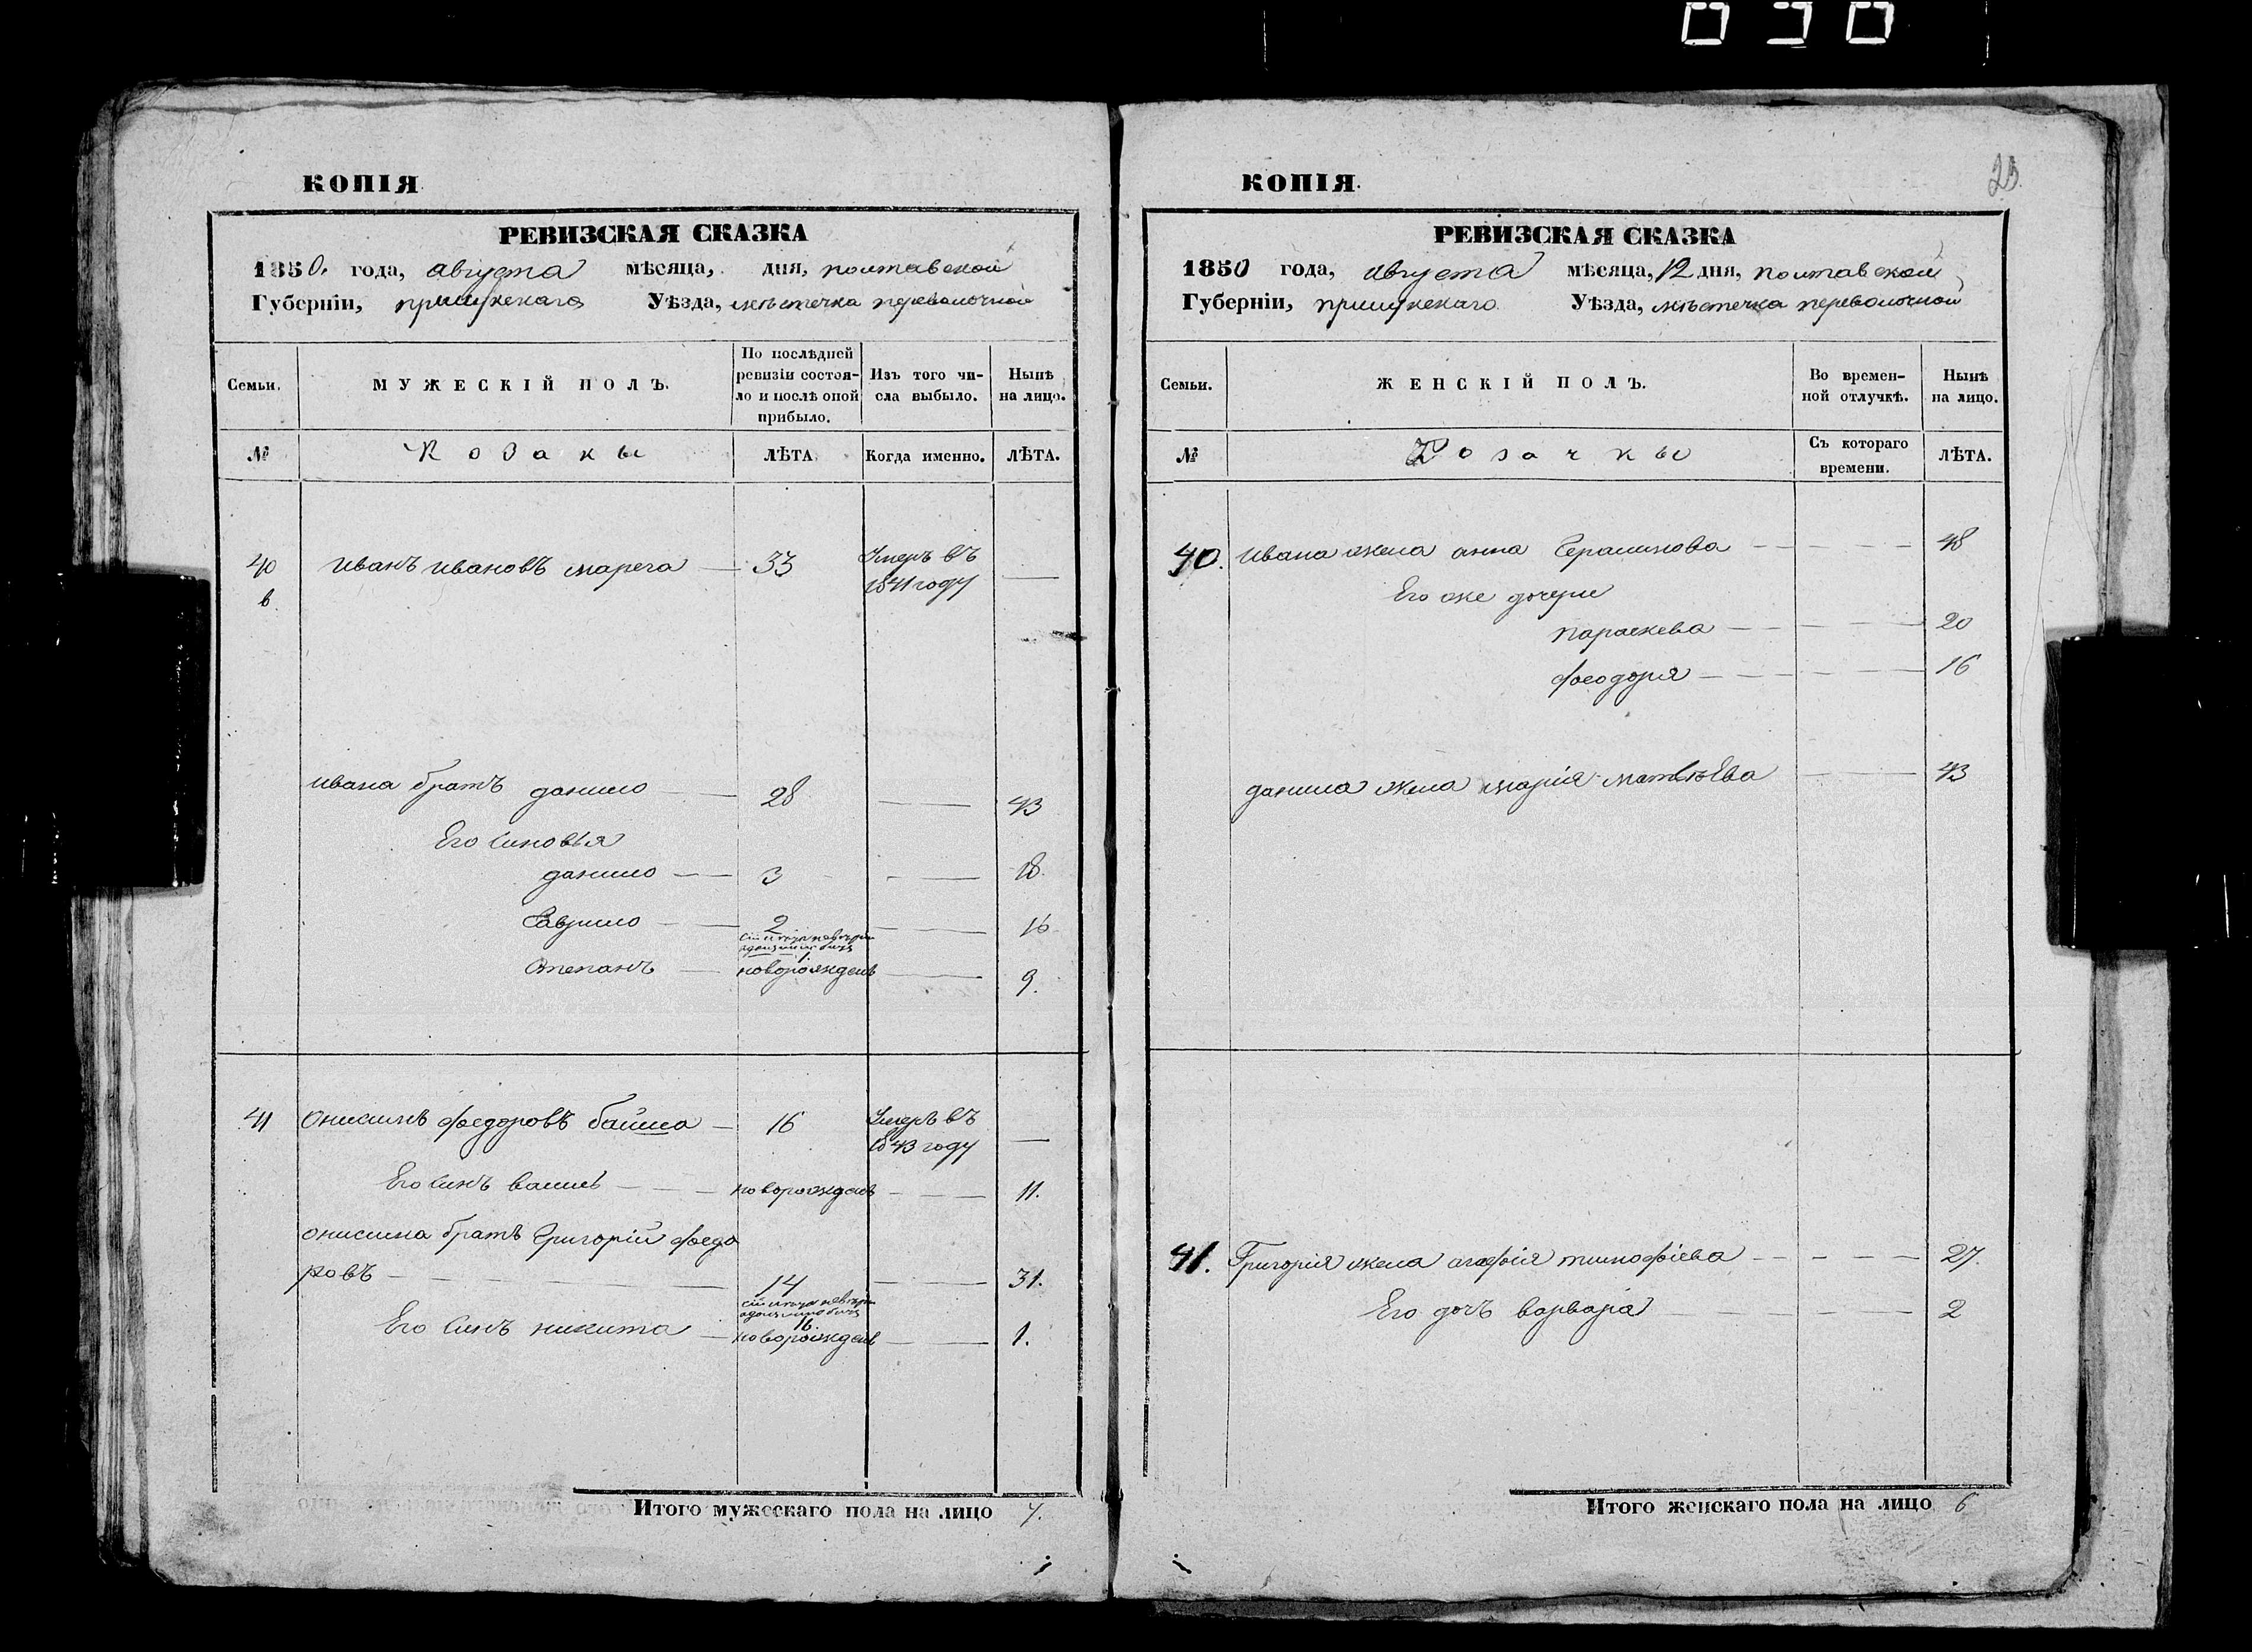 КОПІЯ.
РЕВИЗСКАЯ СКАЗКА
1850. года, августа мѣсяца, дня, полтавской
Губерніи, прилукскаго Уѣзда, мѣстечка переволочной
Семьи.
МУЖЕСКІЙ ПОЛЪ.
По послѣдней ревизіи состоя-
ло и послѣ оной прибыло.
Изъ того чи-
сла выбыло.
Нынѣ
на лицо.
№
Козаки
ЛѢТА.
Когда именно.
ЛѢТА.
40 иванъ ивановъ марега — 33 Умеръ въ
в. 1841 году —
ивана братъ данило — 28 — 43
Его синовья
данило — 3 — 18.
Гаврило — 2 — 16
1.
Степанъ — новорожденъ — 9.
41 Онисимъ федоровъ байша — 16 Умеръ въ
1843 году —
Его синъ василь — новорожденъ — 11.
онисима братъ Григорій федо
ровъ — 14 — 31.
16.
Его синъ никита — новорожденъ — 1.
Итого мужескаго пола на лицо 7.
КОПІЯ.
23.
РЕВИЗСКАЯ СКАЗКА
1850 года, августа мѣсяца, 12 дня, полтавской
Губерніи, прилукскаго Уѣзда, мѣстечка переволочной
Семьи.
ЖЕНСКІЙ ПОЛЪ.
Во времен-
ной отлучкѣ.
Нынѣ
на лицо.
№
Козачки
Съ котораго
времени.
ЛѢТА.
40. ивана жена анна Герасимова — 48
Его же дочери
параскева — 20
феодорія — 16
данила жена марія матвѣева — 43
41. Григорія жена агафія тимофіева — 27.
Его дочъ варвара — 2
Итого женскаго пола на лицо 6